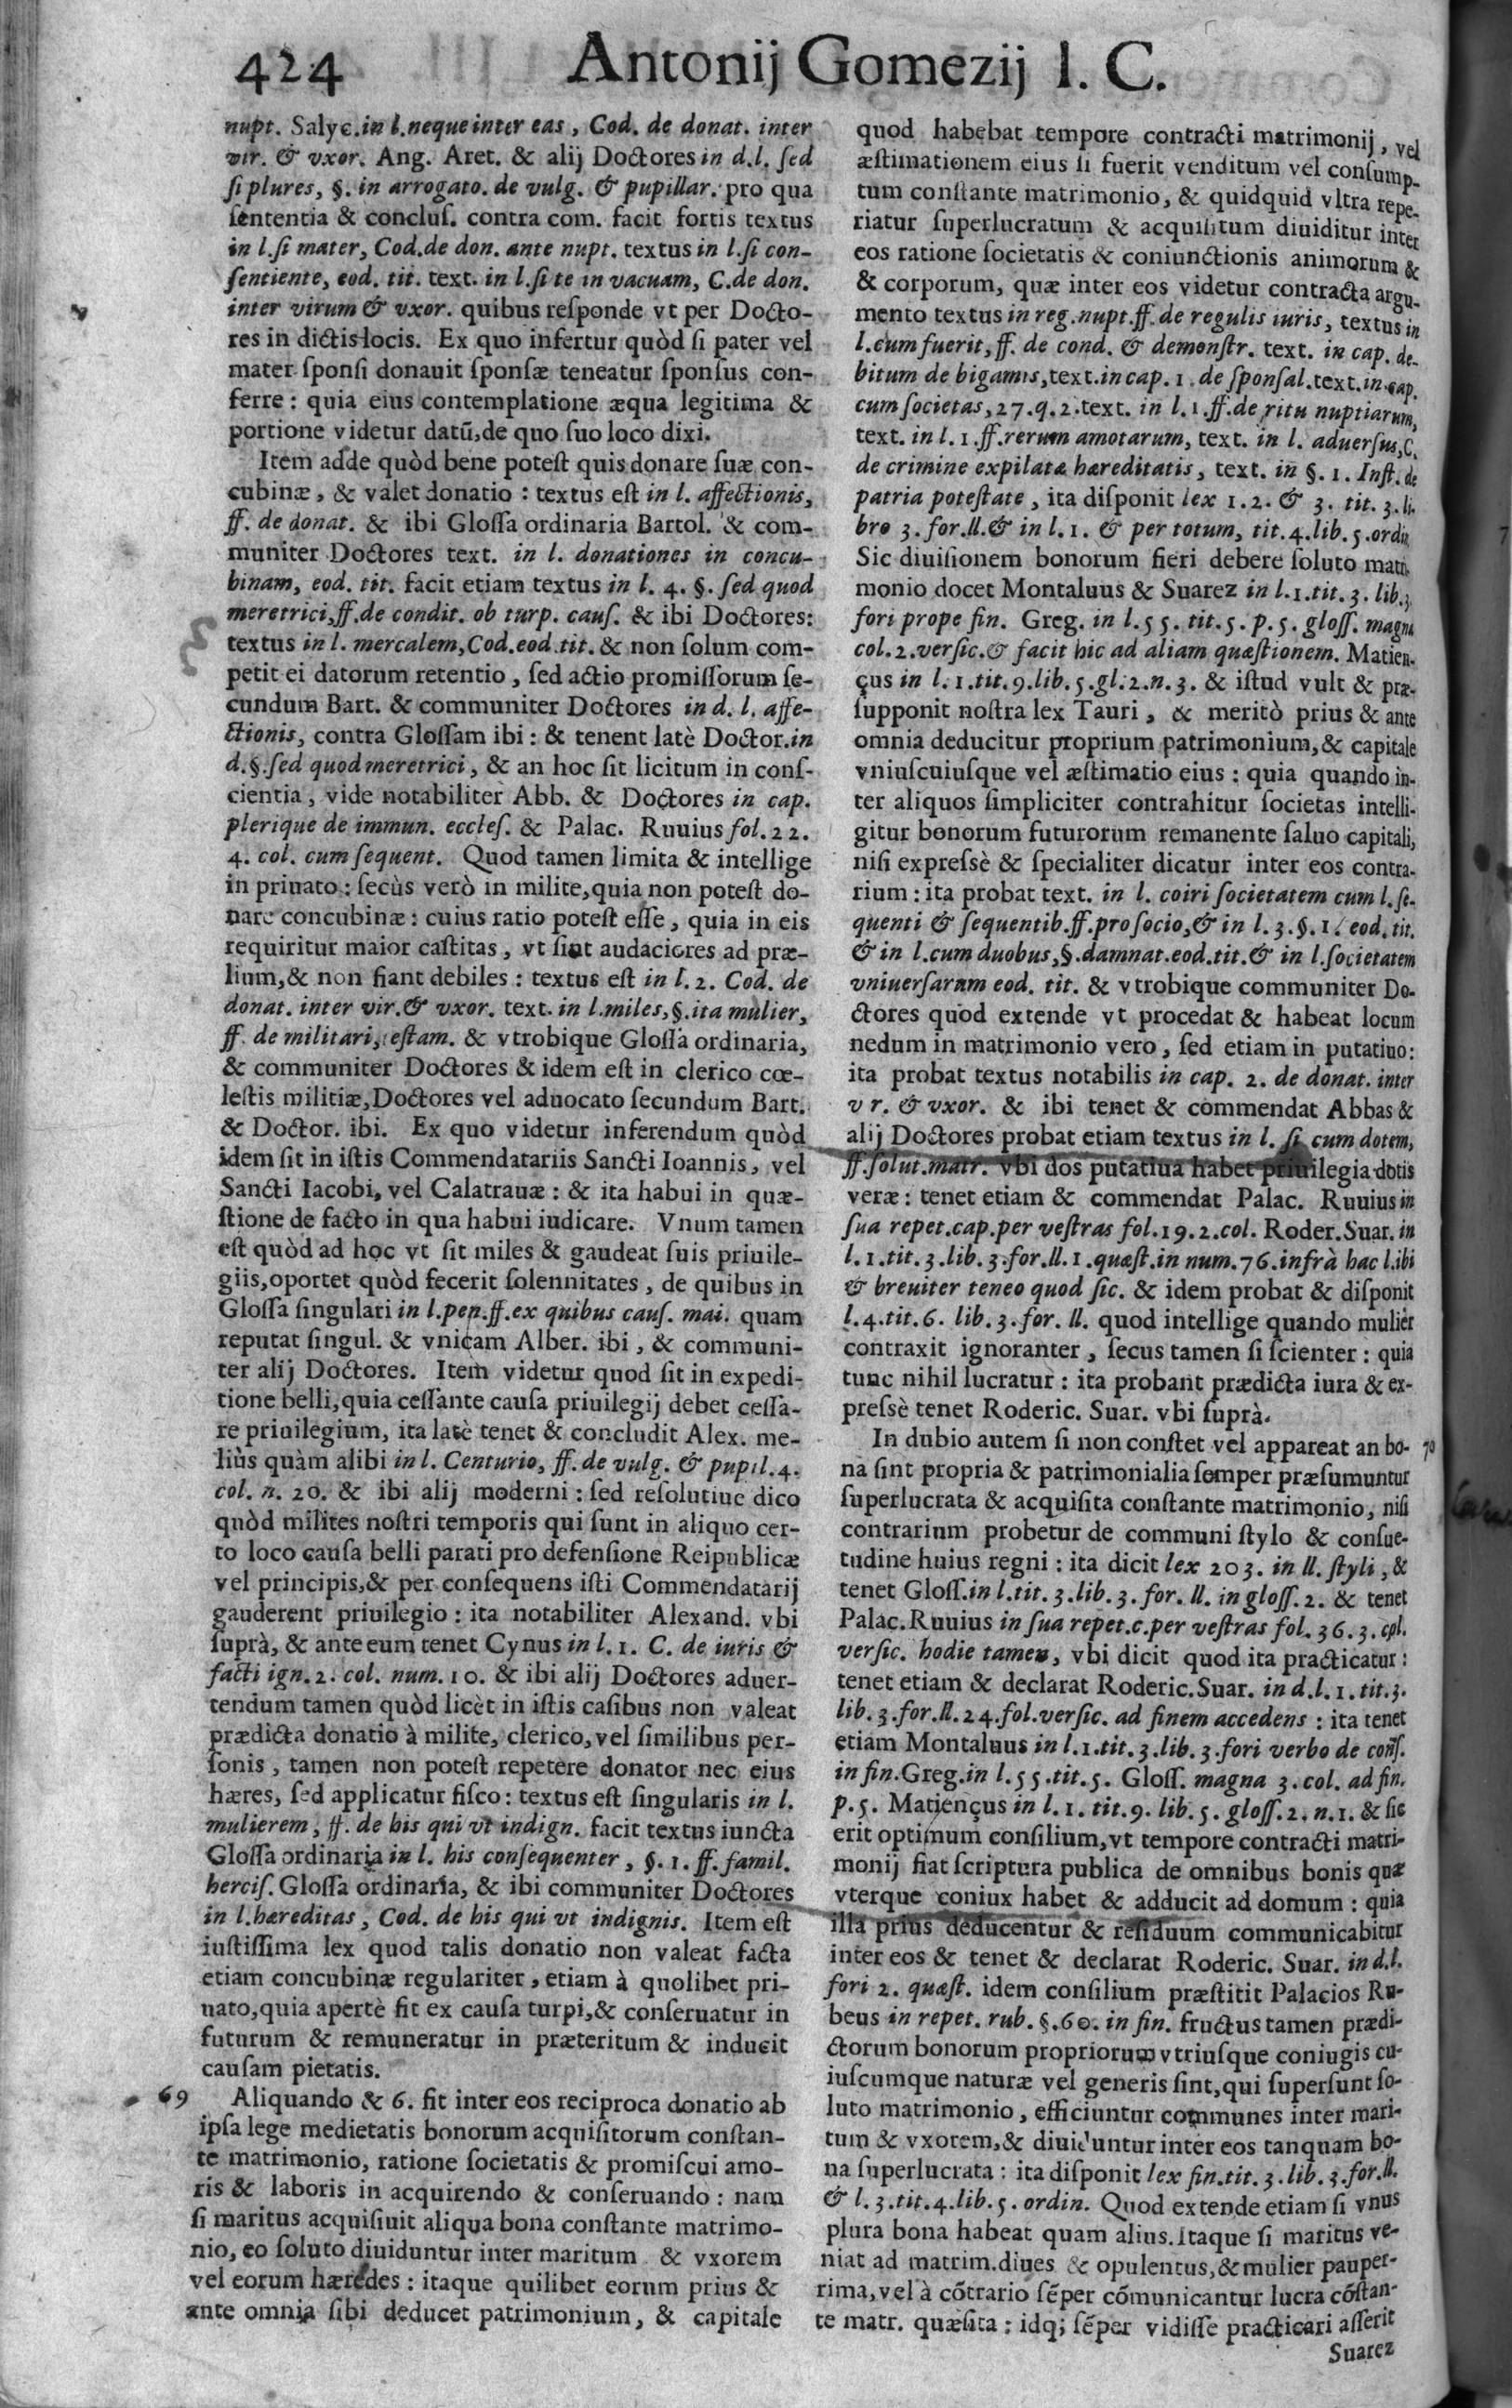 424
Antonij Gomezij I. C.
nupt. Salyc. in l. neque inter eas, Cod. de donat. inter
vir. & vxor. Ang. Aret. & alij Doctores in d. l. sed
si plures, §. in arrogato. de vulg. & pupillar. pro qua
sententia & conclus. contra com. facit fortis textus
in l. si mater, Cod. de don. ante nupt. textus in l. si con-
sentiente, eod. tit. text. in l. si te in vacuam, C. de don.
inter virum & vxor. quibus responde vt per Docto-
res in dictis locis. Ex quo infertur quòd si pater vel
mater sponsi donauit sponsæ teneatur sponsus con-
ferre: quia eius contemplatione æqua legitima &
portione videtur datũ, de quo suo loco dixi.
Item adde quòd bene potest quis donare suæ con-
cubinæ, & valet donatio: textus est in l. affectionis,
ff. de donat. & ibi Glossa ordinaria Bartol. & com-
muniter Doctores text. in l. donationes in concu-
binam, eod. tit. facit etiam textus in l. 4. §. sed quod
meretrici, ff. de condit. ob turp. caus. & ibi Doctores:
textus in l. mercalem, Cod. eod. tit. & non solum com-
petit ei datorum retentio, sed actio promissorum se-
cundum Bart. & communiter Doctores in d. l. affe-
ctionis, contra Glossam ibi: & tenent latè Doctor. in
d. §. sed quod meretrici, & an hoc sit licitum in cons-
cientia, vide notabiliter Abb. & Doctores in cap.
plerique de immun. eccles. & Palac. Ruuius fol. 22.
4. col. cum sequent. Quod tamen limita & intellige
in priuato: secùs verò in milite, quia non potest do-
nare concubinæ: cuius ratio potest esse, quia in eis
requiritur maior castitas, vt sint audaciores ad præ-
lium, & non fiant debiles: textus est in l. 2. Cod. de
donat. inter vir. & vxor. text. in l. miles, §. ita mulier,
ff. de militari, estam. & vtrobique Glossa ordinaria,
& communiter Doctores & idem est in clerico cœ-
lestis militiæ, Doctores vel aduocato secundum Bart.
& Doctor. ibi. Ex quo videtur inferendum quòd
idem sit in istis Commendatariis Sancti Ioannis, vel
Sancti Iacobi, vel Calatrauæ: & ita habui in quæ-
stione de facto in qua habui iudicare. Vnum tamen
est quòd ad hoc vt sit miles & gaudeat suis priuile-
giis, oportet quòd fecerit solennitates, de quibus in
Glossa singulari in l. pen. ff. ex quibus caus. mai. quam
reputat singul. & vnicam Alber. ibi, & communi-
ter alij Doctores. Item videtur quod sit in expedi-
tione belli, quia cessante causa priuilegij debet cessa-
re priuilegium, ita latè tenet & concludit Alex. me-
liùs quàm alibi in l. Centurio, ff. de vulg. & pupil. 4.
col. n. 20. & ibi alij moderni: sed resolutiue dico
quòd milites nostri temporis qui sunt in aliquo cer-
to loco causa belli parati pro defensione Reipublicæ
vel principis, & per consequens isti Commendatarij
gauderent priuilegio: ita notabiliter Alexand. vbi
suprà, & ante eum tenet Cynus in l. 1. C. de iuris &
facti ign. 2. col. num. 10. & ibi alij Doctores aduer-
tendum tamen quòd licèt in istis casibus non valeat
prædicta donatio à milite, clerico, vel similibus per-
sonis, tamen non potest repetere donator nec eius
hæres, sed applicatur fisco: textus est singularis in l.
mulierem, ff. de his qui vt indign. facit textus iuncta
Glossa ordinaria in l. his consequenter, §. 1. ff. famil.
hercis. Glossa ordinaria, & ibi communiter Doctores
in l. hæreditas, Cod. de his qui vt indignis. Item est
iustissima lex quod talis donatio non valeat facta
etiam concubinæ regulariter, etiam à quolibet pri-
uato, quia apertè fit ex causa turpi, & conseruatur in
futurum & remuneratur in præteritum & inducit
causam pietatis.
69 Aliquando & 6. fit inter eos reciproca donatio ab
ipsa lege medietatis bonorum acquisitorum constan-
te matrimonio, ratione societatis & promiscui amo-
ris & laboris in acquirendo & conseruando: nam
si maritus acquisiuit aliqua bona constante matrimo-
nio, eo soluto diuiduntur inter maritum & vxorem
vel eorum hæredes: itaque quilibet eorum prius &
ante omnia sibi deducet patrimonium, & capitale
quod habebat tempore contracti matrimonij, vel
æstimationem eius si fuerit venditum vel consump-
tum constante matrimonio, & quidquid vltra repe-
riatur superlucratum & acquisitum diuiditur inter
eos ratione societatis & coniunctionis animorum &
& corporum, quæ inter eos videtur contracta argu-
mento textus in reg. nupt. ff. de regulis iuris, textus in
l. cum fuerit, ff. de cond. & demonstr. text. in cap. de-
bitum de bigamis, text. in cap. 1. de sponsal. text. in cap.
cum societas, 27. q. 2. text. in l. 1. ff. de ritu nuptiarum,
text. in l. 1. ff. rerum amotarum, text. in l. aduersus, C.
de crimine expilatæ hæreditatis, text. in §. 1. Inst. de
patria potestate, ita disponit lex 1. 2. & 3. tit. 3. li-
bro 3. for. ll. & in l. 1. & per totum, tit. 4. lib. 5. ordin.
Sic diuisionem bonorum fieri debere soluto matri-
monio docet Montaluus & Suarez in l. 1. tit. 3. lib. 3.
fori prope fin. Greg. in l. 55. tit. 5. p. 5. gloss. magna
col. 2. versic. & facit hic ad aliam quæstionem. Matien-
çus in l. 1. tit. 9. lib. 5. gl. 2. n. 3. & istud vult & præ-
supponit nostra lex Tauri, & meritò prius & ante
omnia deducitur proprium patrimonium, & capitale
vniuscuiusque vel æstimatio eius: quia quando in-
ter aliquos simpliciter contrahitur societas intelli-
gitur bonorum futurorum remanente saluo capitali,
nisi expressè & specialiter dicatur inter eos contra-
rium: ita probat text. in l. coiri societatem cum l. se-
quenti & sequentib. ff. pro socio, & in l. 3. §. 1. eod. tit.
& in l. cum duobus, §. damnat. eod. tit. & in l. societatem
vniuersarum eod. tit. & vtrobique communiter Do-
ctores quod extende vt procedat & habeat locum
nedum in matrimonio vero, sed etiam in putatiuo:
ita probat textus notabilis in cap. 2. de donat. inter
v r. & vxor. & ibi tenet & commendat Abbas &
alij Doctores probat etiam textus in l. si cum dotem,
ff. solut. matr. vbi dos putatiua habet priuilegia dotis
veræ: tenet etiam & commendat Palac. Ruuius in
sua repet. cap. per vestras fol. 19. 2. col. Roder. Suar. in
l. 1. tit. 3. lib. 3. for. ll. 1. quæst. in num. 76. infrà hac l. ibi
& breuiter teneo quod sic. & idem probat & disponit
l. 4. tit. 6. lib. 3. for. ll. quod intellige quando mulier
contraxit ignoranter, secus tamen si scienter: quia
tunc nihil lucratur: ita probant prædicta iura & ex-
pressè tenet Roderic. Suar. vbi suprà.
In dubio autem si non constet vel appareat an bo- 70
na sint propria & patrimonialia semper præsumuntur
superlucrata & acquisita constante matrimonio, nisi
contrarium probetur de communi stylo & consue-
tudine huius regni: ita dicit lex 203. in ll. styli, &
tenet Gloss. in l. tit. 3. lib. 3. for. ll. in gloss. 2. & tenet
Palac. Ruuius in sua repet. c. per vestras fol. 36. 3. col.
versic. hodie tamen, vbi dicit quod ita practicatur:
tenet etiam & declarat Roderic. Suar. in d. l. 1. tit. 3.
lib. 3. for. ll. 24. fol. versic. ad finem accedens: ita tenet
etiam Montaluus in l. 1. tit. 3. lib. 3. fori verbo de cons.
in fin. Greg. in l. 55. tit. 5. Gloss. magna 3. col. ad fin.
p. 5. Matiençus in l. 1. tit. 9. lib. 5. gloss. 2. n. 1. & sic
erit optimum consilium, vt tempore contracti matri-
monij fiat scriptura publica de omnibus bonis quæ
vterque coniux habet & adducit ad domum: quia
illa prius deducentur & residuum communicabitur
inter eos & tenet & declarat Roderic. Suar. in d. l.
fori 2. quæst. idem consilium præstitit Palacios Ru-
beus in repet. rub. §. 60. in fin. fructus tamen prædi-
ctorum bonorum propriorum vtriusque coniugis cu-
iuscumque naturæ vel generis sint, qui supersunt so-
luto matrimonio, efficiuntur communes inter mari-
tum & vxorem, & diuiduntur inter eos tanquam bo-
na superlucrata: ita disponit lex fin. tit. 3. lib. 3. for. ll.
& l. 3. tit. 4. lib. 5. ordin. Quod extende etiam si vnus
plura bona habeat quam alius. Itaque si maritus ve-
niat ad matrim. diues & opulentus, & mulier pauper-
rima, vel à cõtrario sẽper cõmunicantur lucra cõstan-
te matr. quæsita: idq; sẽper vidisse practicari asserit
Suarez